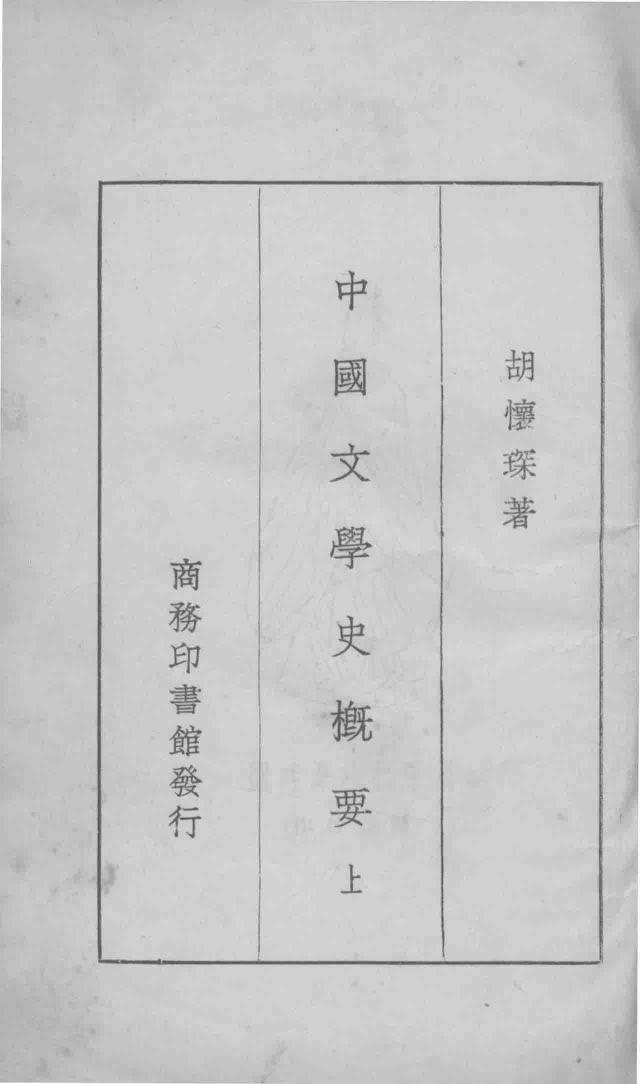 胡懷琛著
中國文學史概要上
商務印書館發行